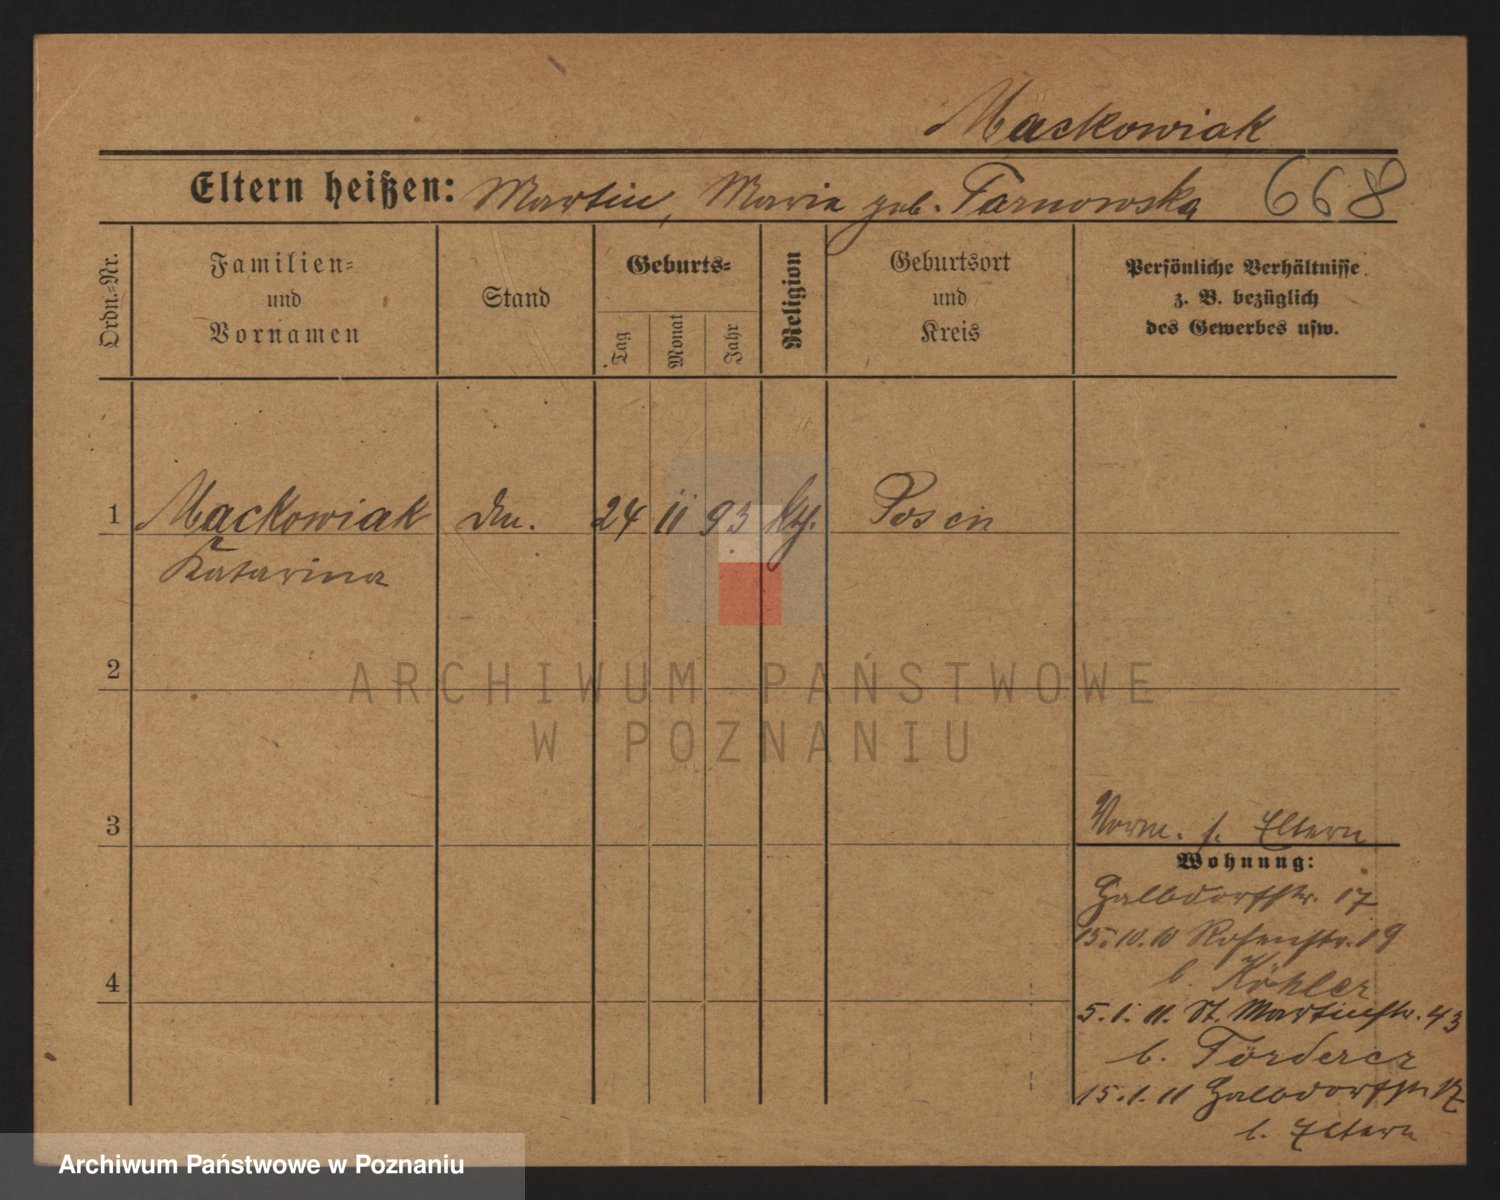 Mackowiak
Eltern heißen: Martin, Maria geb. Tarnowska 668
Ordn.-Nr.
Familien-
und
Vornamen
Stand
Geburts-
Tag
Monat
Jahr
Religion
Geburtsort
und
Kreis
Persönliche Verhältnisse
z. B. bezüglich
des Gewerbes usw.
1 Mackowiak 24 11 93 Posen
Katarina
2
ARCHIWUM PAŃSTWOWE
W POZNANIU
3
Vorm. s. Eltern
Wohnung:
Halbdorfstr. 17
15.10.10 Rosenstr. 19
b. Köhler
4
5.1.11. St. Martinstr. 43
b. Förderer
15.1.11 Halbdorfstr. 17
b. Eltern
Archiwum Państwowe w Poznaniu